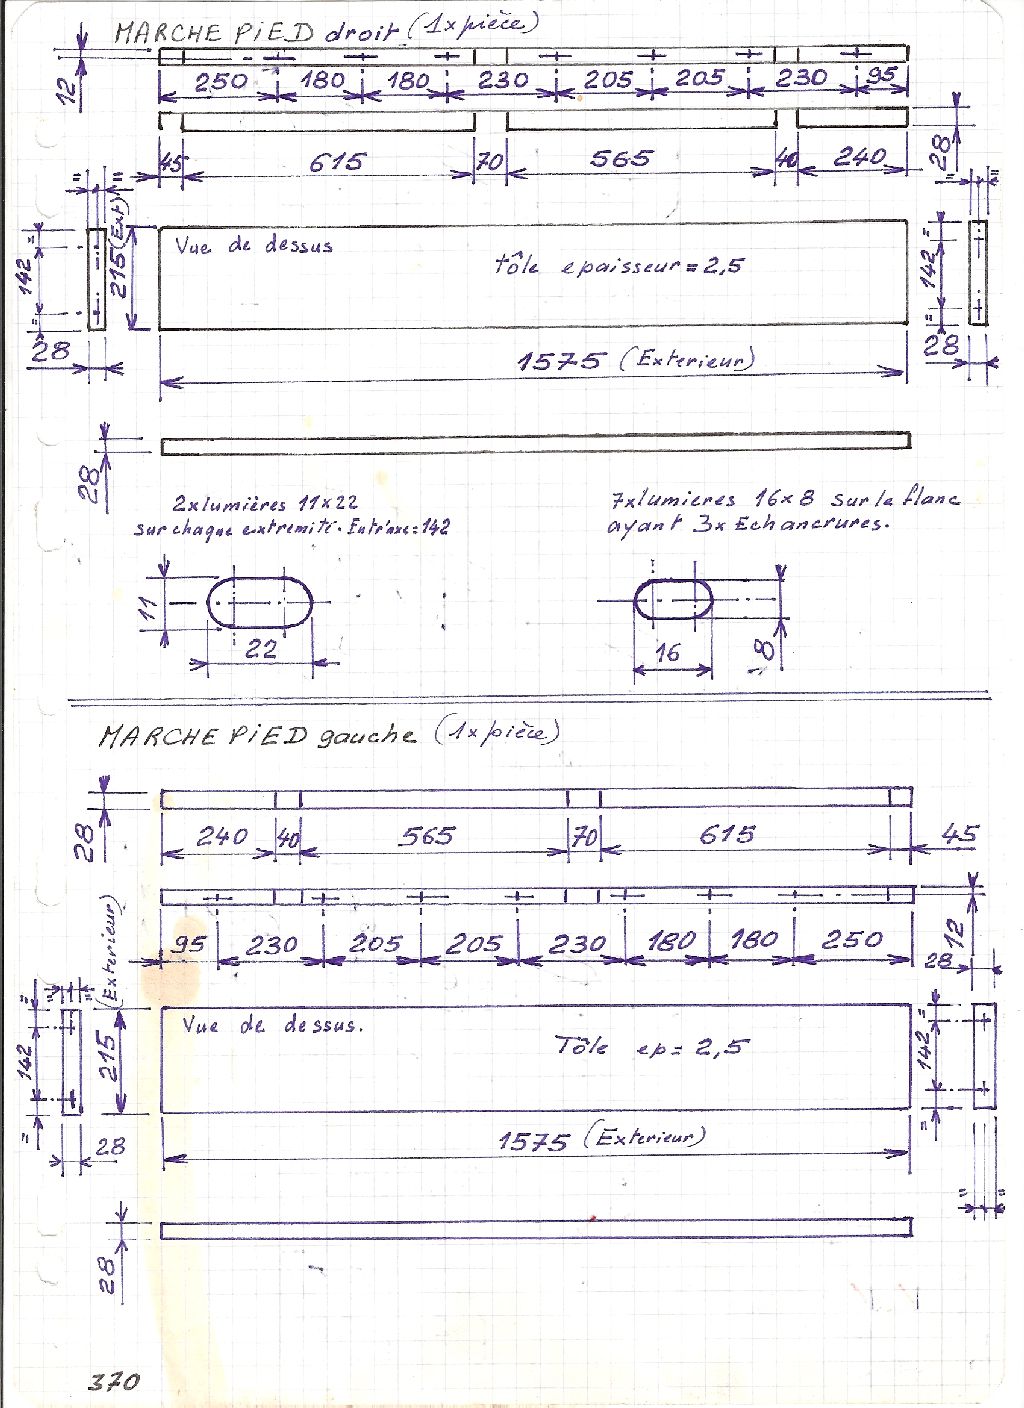 MARCHE PiED droit (1x pièce)
12
250 180 180 230 205 205 230 95
45 615 70 565 40 240
28
= =
= =
= 142 =
215 (Ext)
Vue de dessus
tôle epaisseur = 2,5
= 142 =
28
28
1575 (Exterieur)
28
2x lumières 11x22
sur chaque extremité. Entr'axe = 142
7x lumieres 16x8 sur le flanc
ayant 3x Echancrures.
11
22
16
8
MARCHE PiED gauche (1x pièce)
28
240 40 565 70 615 45
95 230 205 205 230 180 180 250
12
28
= =
= 142 =
215 (Exterieur)
Vue de dessus.
Tôle ep = 2,5
= 142 =
28
1575 (Exterieur)
= =
28
370